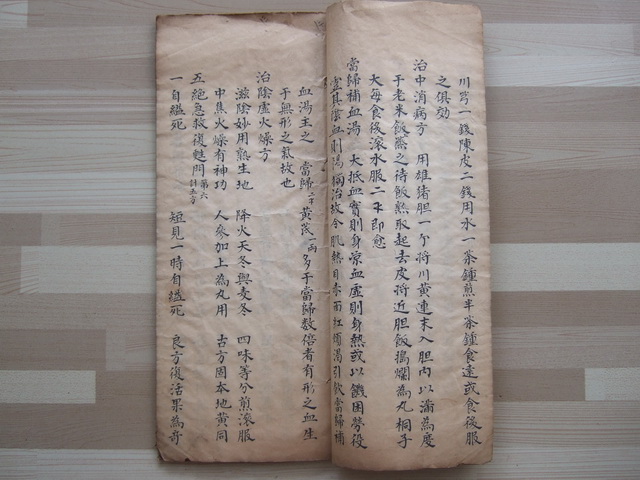 川芎一錢陳皮二錢用水一茶鍾煎半茶鍾食遠或食後服
之俱効
治中消病方 用雄猪胆一个將川黃連末入胆內以滿為度
于老米飯蒸之待飯熟取起去皮將近胆飯搗爛為丸桐子
大每食後滾水服二丰即愈
當歸補血湯 大抵血實則身涼血虛則身熱或以饑困勞役
虛其陰血則陽獨治故令肌熱目赤面紅煩渴引飲當歸補
血湯主之 當歸二丰黃芪一両多于當歸数倍者有形之血生
于無形之氣故也
治陰虛火燥方
滋陰妙用熟生地 降火天冬與麦冬 四味等分煎滾服
中焦火燥有神功 人參加上為丸用 古方固本地黃同
五絕急救復甦門第六計五方
一自縊死 短見一時自縊死 良方復活果為奇